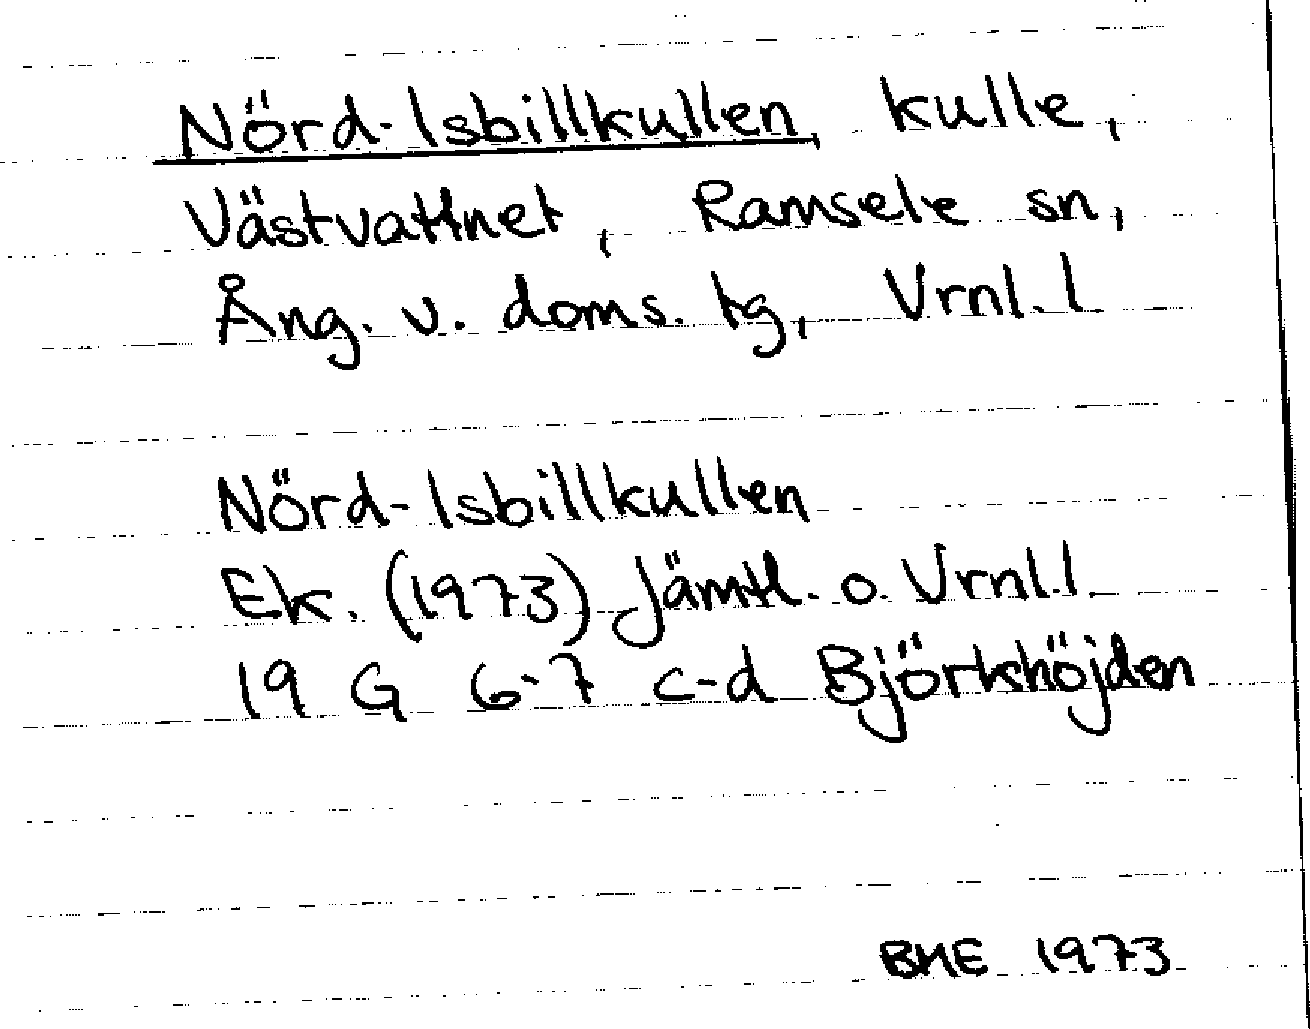 Nörd-Isbillkullen, kulle,
Västvattnet, Ramsele sn,
Ång. v. doms. tg, Vrnl. l
Nörd-Isbillkullen
Ek. (1973) Jämtl. o. Vrnl.l
19 G 6-7 c-d Björkhöjden
BHE 1973